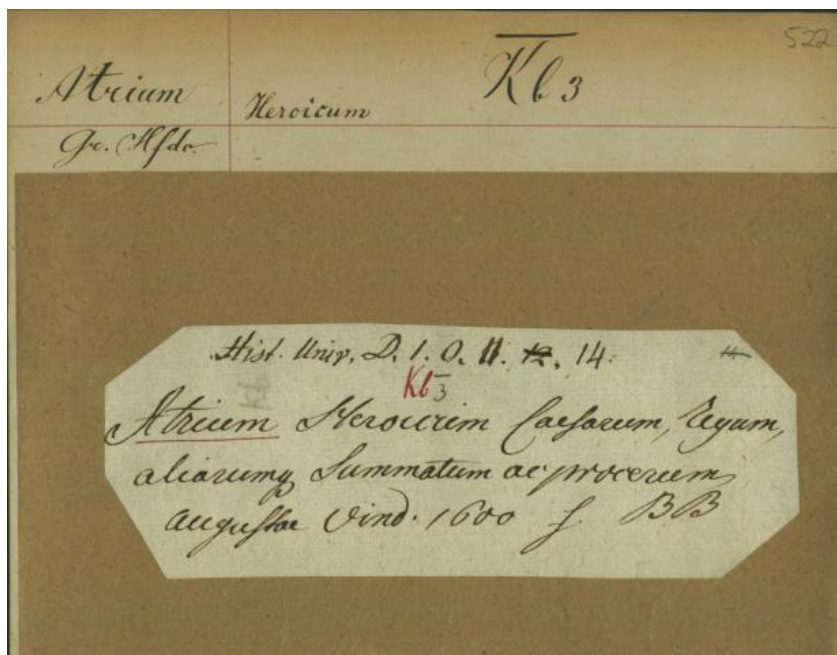 522
Atrium Heroicum Kb 3
Gr. Hfdr.
Hist. Univ. D. 1. O. 11. 12. 14.
Kb 3
Atrium Heroicum Caesarum, Regum,
aliarumq Summatum ac procerum
Augustae Vind. 1600 f BB